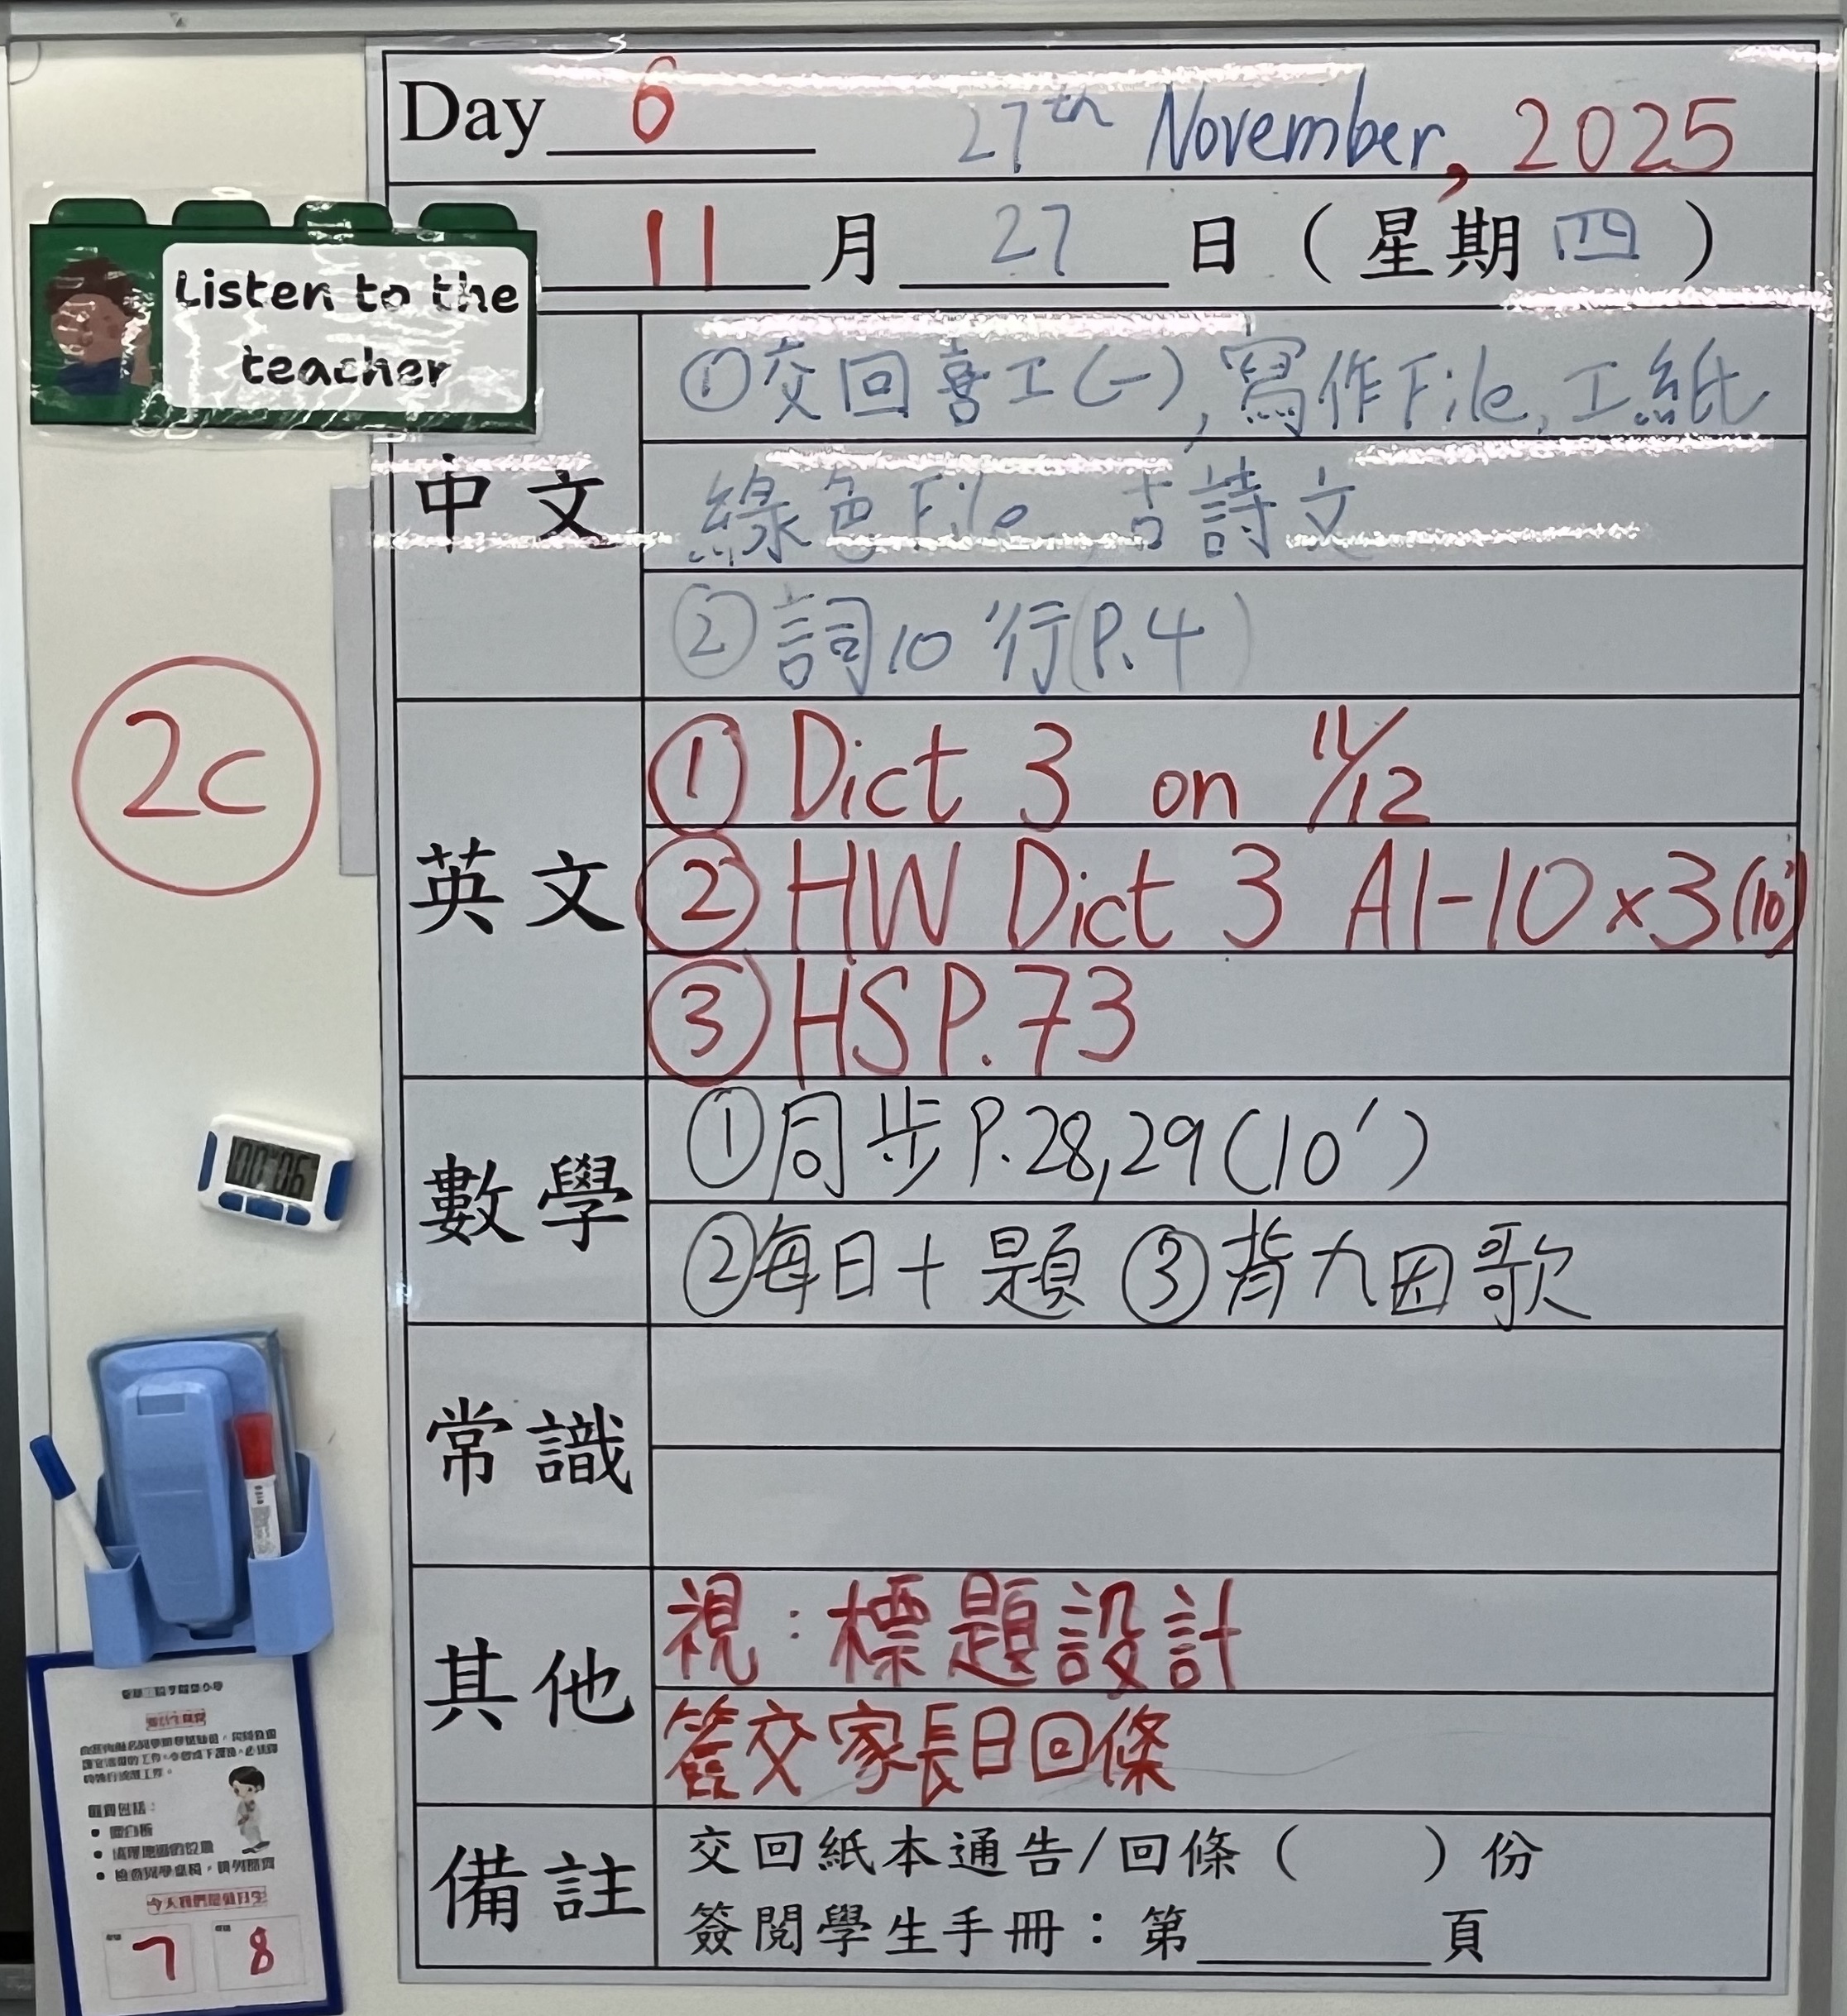 Day 6 27th November, 2025
11 月 27 日 ( 星期 四 )
Listen to the
teacher
中文
①交回喜工(一), 寫作File, 工紙
綠色File, 古詩文
②詞10'行(P.4)
2C
英文
① Dict 3 on 11/12
② HW Dict 3 A1-10 x 3 (10')
③ HS P.73
數學
①同步P.28,29(10')
②每日十題 ③背九因歌
00 06
常識
其他
視:標題設計
簽交家長日回條
備註
交回紙本通告/回條( )份
簽閱學生手冊:第 頁
今天我們是值日生
7 8